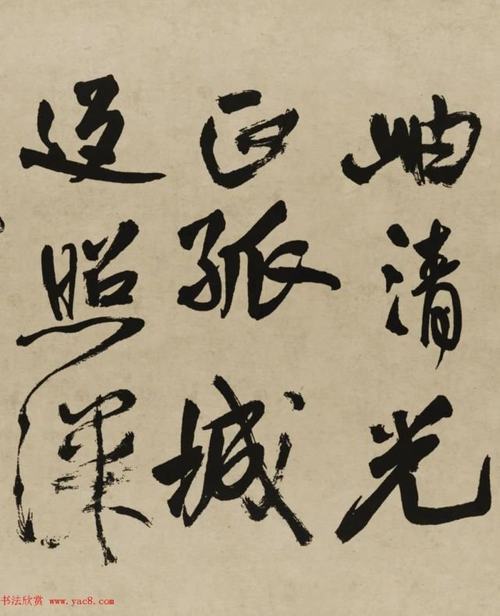 岫清光
正孤城
照深
书法欣赏 www.yac8.com